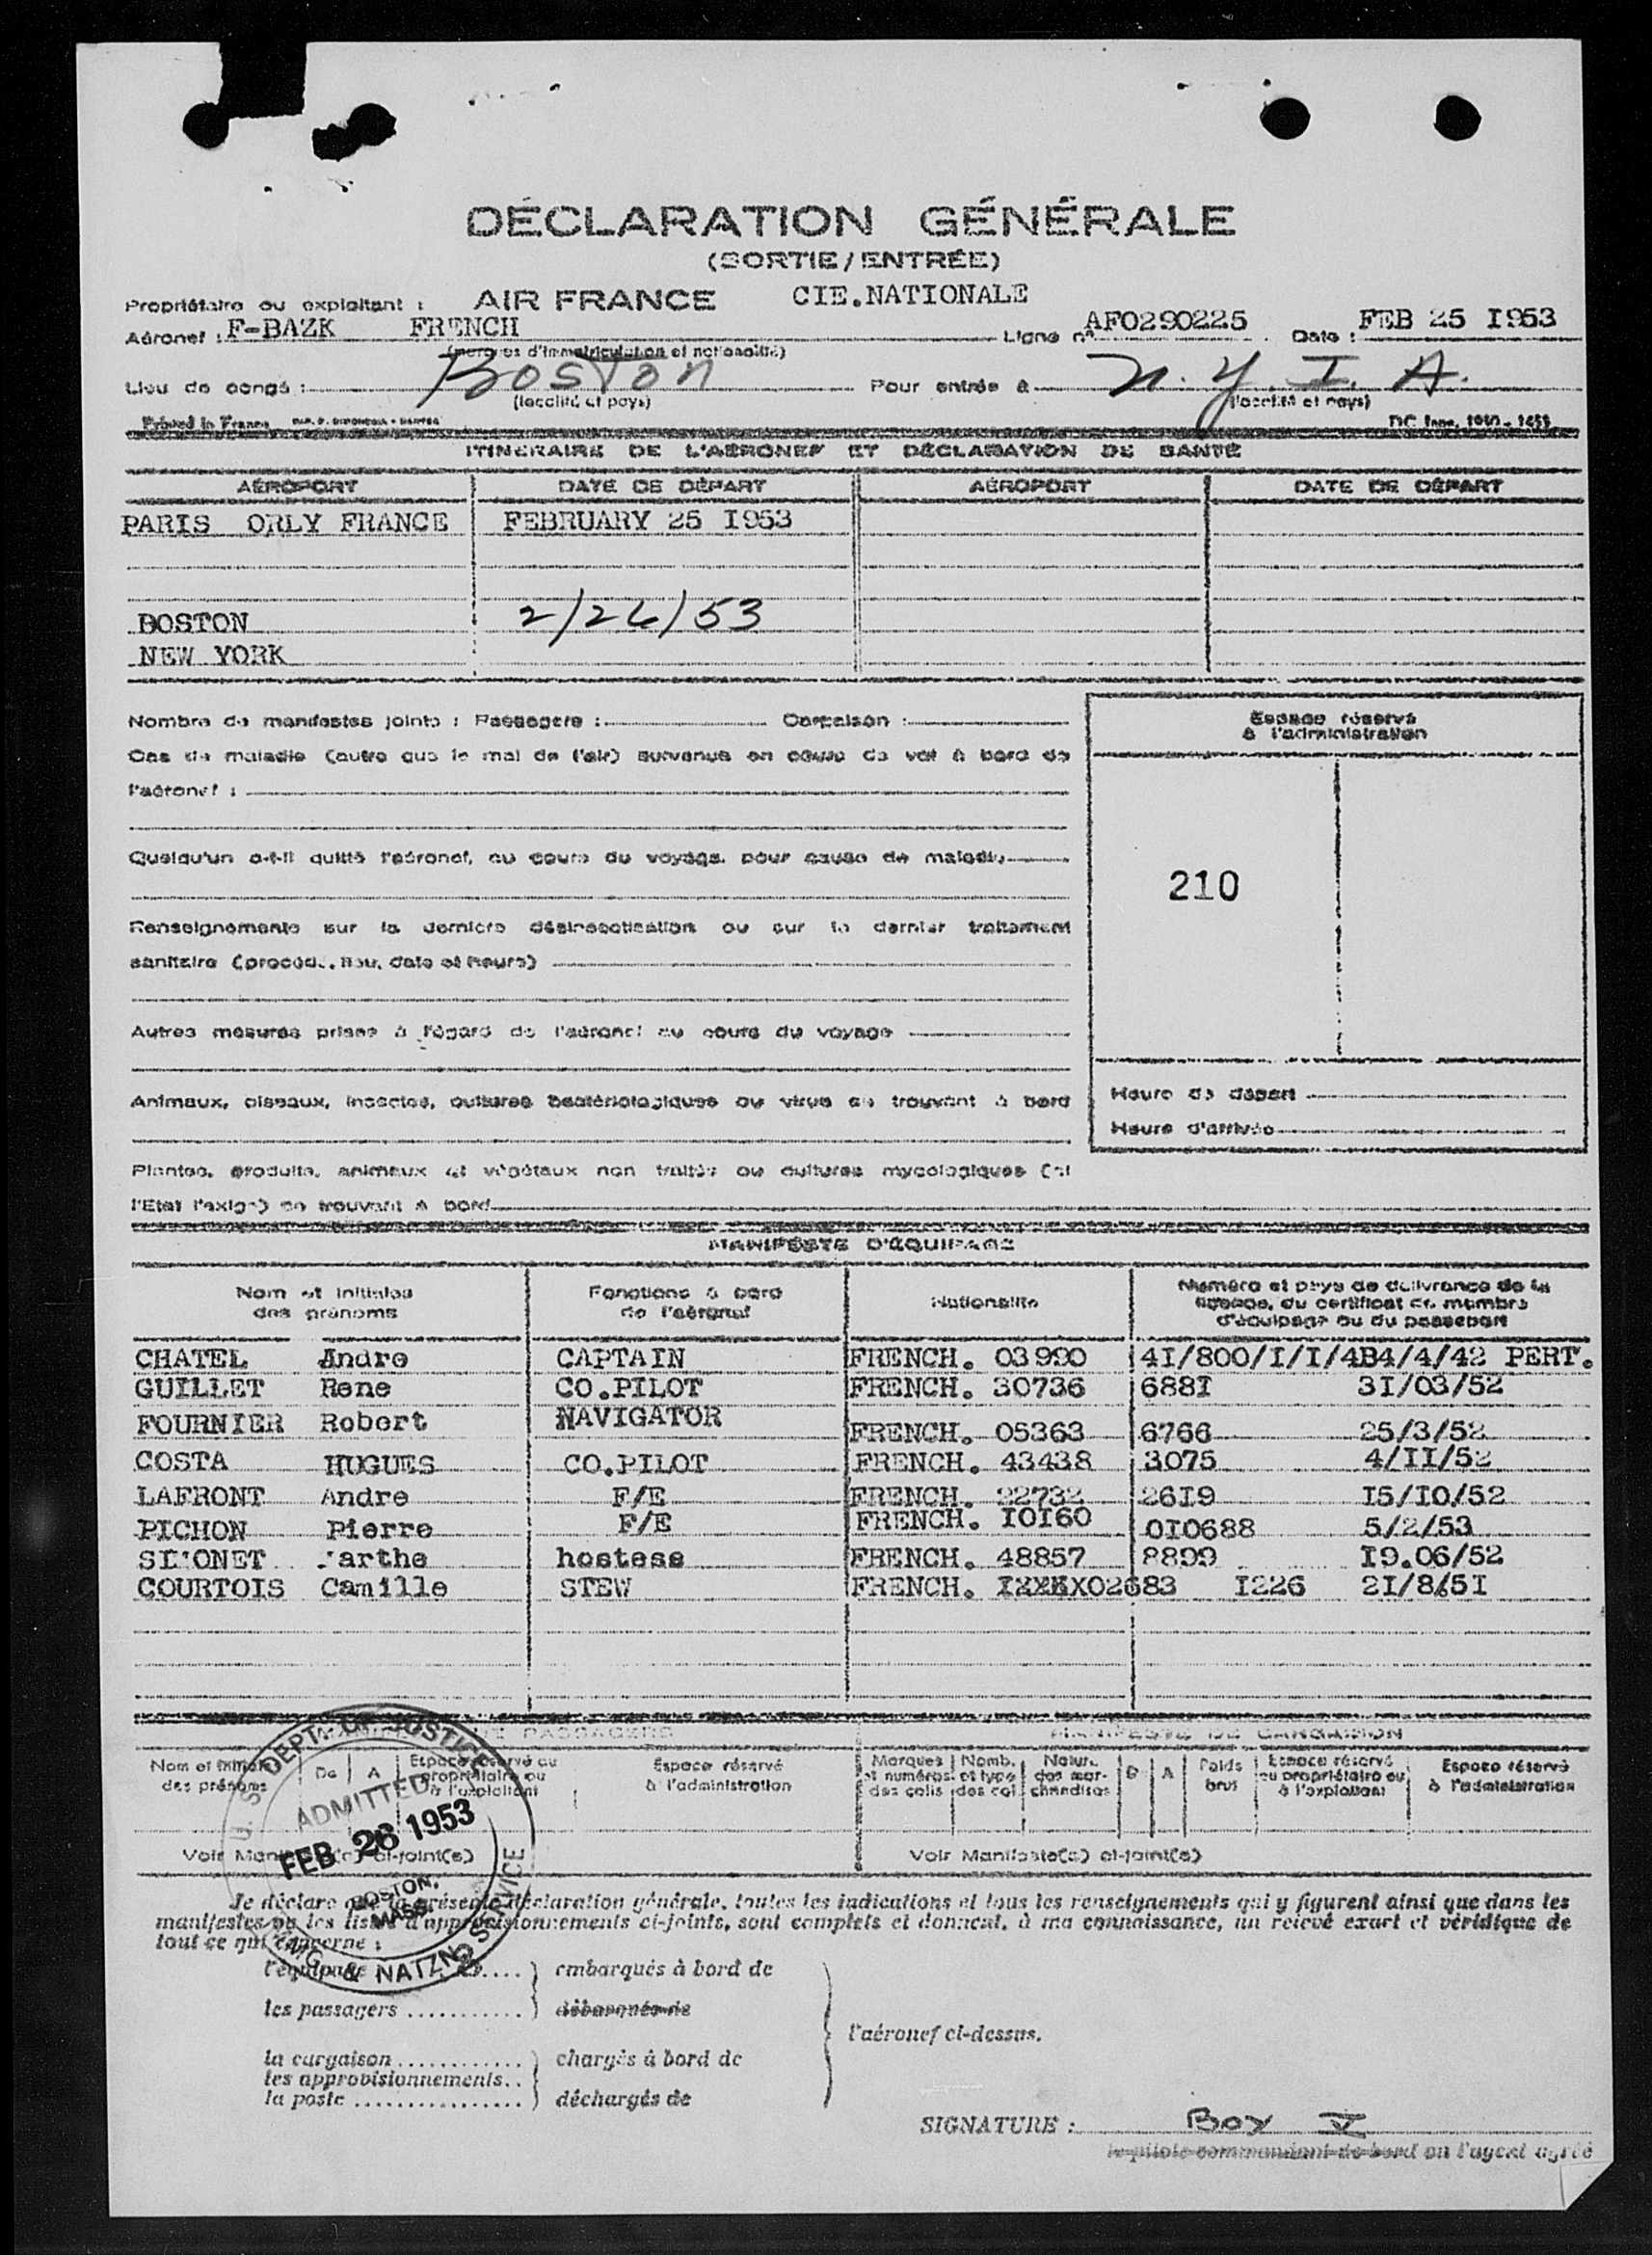 DÉCLARATION GÉNÉRALE
(SORTIE / ENTRÉE)
Propriétaire ou exploitant : AIR FRANCE CIE.NATIONALE
Aéronef : F-BAZK FRENCH Ligne n° AF0290225 Date : FEB 25 I953
(marques d'immatriculation et nationalité)
Lieu de congé : Boston Pour entrée à N. Y. I. A.
(localité et pays) (localité et pays)
Printed in France
ITINÉRAIRE DE L'AÉRONEF ET DÉCLARATION DE SANTÉ
AÉROPORT DATE DE DÉPART AÉROPORT DATE DE DÉPART
PARIS ORLY FRANCE FEBRUARY 25 I953
BOSTON 2/26/53
NEW YORK
Nombre de manifestes joints : Passagers : Cargaison :
Espace réservé
à l'administration
Cas de maladie (autre que le mal de l'air) survenus en cours de vol à bord de
l'aéronef :
Quelqu'un a-t-il quitté l'aéronef, au cours du voyage, pour cause de maladie
210
Renseignements sur la dernière désinsectisation ou sur le dernier traitement
sanitaire (procédé, lieu, date et heure)
Autres mesures prises à l'égard de l'aéronef au cours du voyage
Animaux, oiseaux, insectes, cultures bactériologiques ou virus se trouvant à bord
Heure de départ
Heure d'arrivée
Plantes, produits, animaux et végétaux non traités ou cultures mycologiques (si
l'Etat l'exige) se trouvant à bord
MANIFESTE D'ÉQUIPAGE
Nom et initiales des prénoms
Fonctions à bord de l'aéronef
Nationalité
Numéro et pays de délivrance de la licence, du certificat de membre d'équipage ou du passeport
CHATEL Andre CAPTAIN FRENCH. 03990 4I/800/I/I/4B4/4/42 PERT.
GUILLET Rene CO.PILOT FRENCH. 30736 688I 3I/03/52
FOURNIER Robert NAVIGATOR FRENCH. 05363 6766 25/3/52
COSTA HUGUES CO.PILOT FRENCH. 43438 3075 4/II/52
LAFRONT Andre F/E FRENCH. 22732 26I9 I5/IO/52
PICHON Pierre F/E FRENCH. IOI60 OI0688 5/2/53
SIMONET Marthe hostess FRENCH. 48857 8899 I9.06/52
COURTOIS Camille STEW FRENCH. 02683 I226 2I/8/5I
PASSAGERS MANIFESTE DE CARGAISON
Nom et initiales des prénoms
De A
Espace réservé au propriétaire ou à l'exploitant
Espace réservé à l'administration
Marques et numéros des colis
Nomb. et type des col.
Natur. des mar- chandises
D A
Poids brut
Espace réservé au propriétaire ou à l'exploitant
Espace réservé à l'administration
Voir Manifeste(s) ci-joint(s) Voir Manifeste(s) ci-joint(s)
U. S. DEPT. OF JUSTICE
ADMITTED
FEB 26 1953
BOSTON,
MASS.
IMMIG. & NATZN. SERVICE
Je déclare que la présente déclaration générale, toutes les indications et tous les renseignements qui y figurent ainsi que dans les
manifestes ou les listes d'approvisionnements ci-joints, sont complets et donnent, à ma connaissance, un relevé exact et véridique de
tout ce qui concerne :
l'équipage } embarqués à bord de
les passagers ........... } débarqués de
l'aéronef ci-dessus.
la cargaison ............ } chargés à bord de
les approvisionnements..
la poste ................ } déchargés de
SIGNATURE : Boy V
le pilote commandant de bord ou l'agent agréé